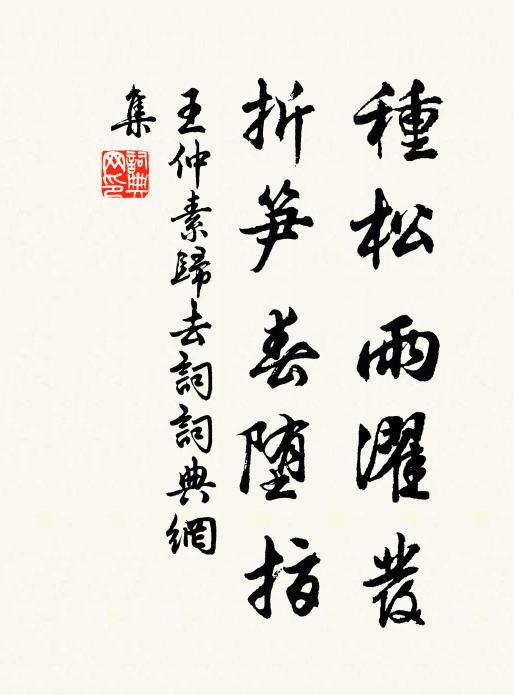 種松雨濯發
折笋春墮指
王仲素歸去詞詞典網
集
詞典网印